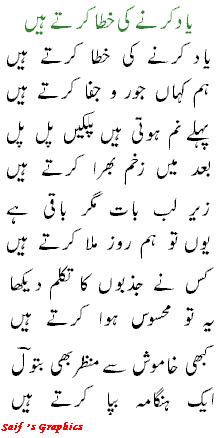 یاد کرنے کی خطا کرتے ہیں
یاد کرنے کی خطا کرتے ہیں
ہم کہاں جور و جفا کرتے ہیں
پہلے نم ہوتی ہیں پلکیں پل پل
بعد میں زخم بھرا کرتے ہیں
زیرِ لب بات مگر باقی ہے
یوں تو ہم روز ملا کرتے ہیں
کس نے جذبوں کا تکلم دیکھا
یہ تو محسوس ہوا کرتے ہیں
کبھی خاموش سے منظر بھی بتولؔ
ایک ہنگامہ بپا کرتے ہیں
Saif 's Graphics